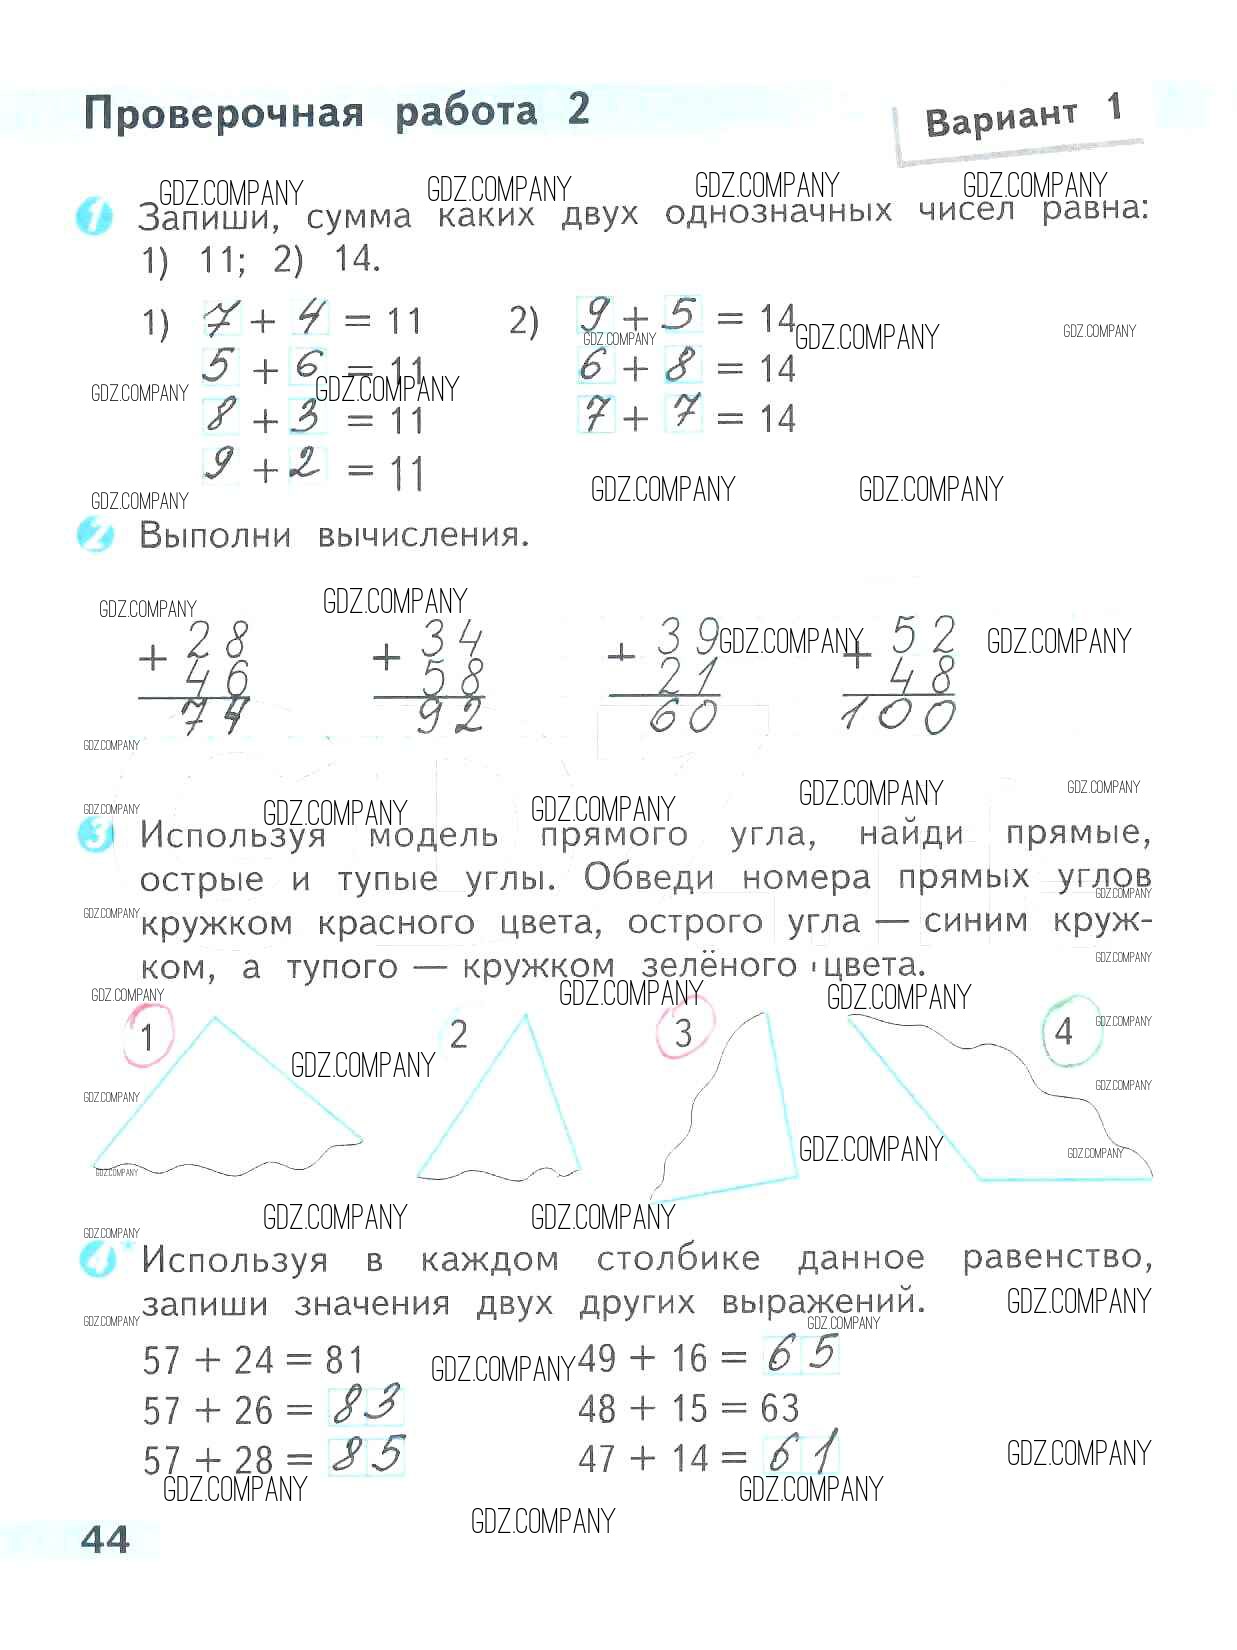 Проверочная работа 2
Вариант 1
GDZ.COMPANY GDZ.COMPANY GDZ.COMPANY GDZ.COMPANY
1 Запиши, сумма каких двух однозначных чисел равна:
1) 11; 2) 14.
1) 7 + 4 = 11 2) 9 + 5 = 14
GDZ.COMPANY GDZ.COMPANY GDZ.COMPANY
5 + 6 = 11 6 + 8 = 14
GDZ.COMPANY GDZ.COMPANY
8 + 3 = 11 7 + 7 = 14
9 + 2 = 11
GDZ.COMPANY GDZ.COMPANY GDZ.COMPANY
2 Выполни вычисления.
GDZ.COMPANY GDZ.COMPANY
+ 28 + 34 + 39 + 52
GDZ.COMPANY GDZ.COMPANY
46 58 21 48
74 92 60 100
GDZ.COMPANY
GDZ.COMPANY GDZ.COMPANY GDZ.COMPANY GDZ.COMPANY GDZ.COMPANY
3 Используя модель прямого угла, найди прямые,
острые и тупые углы. Обведи номера прямых углов
GDZ.COMPANY GDZ.COMPANY
кружком красного цвета, острого угла — синим круж-
ком, а тупого — кружком зелёного цвета.
GDZ.COMPANY
GDZ.COMPANY GDZ.COMPANY GDZ.COMPANY
1 2 3 4
GDZ.COMPANY
GDZ.COMPANY
GDZ.COMPANY GDZ.COMPANY
GDZ.COMPANY GDZ.COMPANY
GDZ.COMPANY
GDZ.COMPANY GDZ.COMPANY GDZ.COMPANY
4* Используя в каждом столбике данное равенство,
запиши значения двух других выражений.
GDZ.COMPANY GDZ.COMPANY GDZ.COMPANY
57 + 24 = 81 49 + 16 = 65
GDZ.COMPANY
57 + 26 = 83 48 + 15 = 63
57 + 28 = 85 47 + 14 = 61
GDZ.COMPANY
GDZ.COMPANY GDZ.COMPANY
GDZ.COMPANY
44